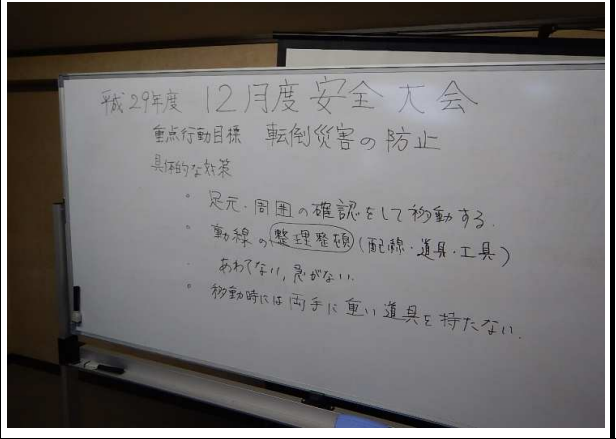 平成29年度 12月度安全大会
重点行動目標 転倒災害の防止
具体的な対策
・足元・周囲の確認をして移動する.
・動線の整理整頓(配線・道具・工具)
・あわてない,急がない.
・移動時には両手に重い道具を持たない.